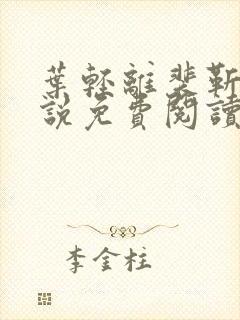 葉輕離裴靳
說免費閱讀
李金柱